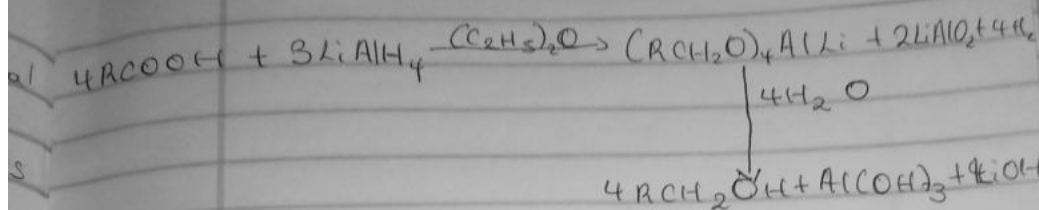 al 4RCOOH + 3LiAlH₄ (C₂H₅)₂O → (RCH₂O)₄AlLi + 2LiAlO₂ + 4H₂
4H₂O
s 4RCH₂OH + Al(OH)₃ + LiOH